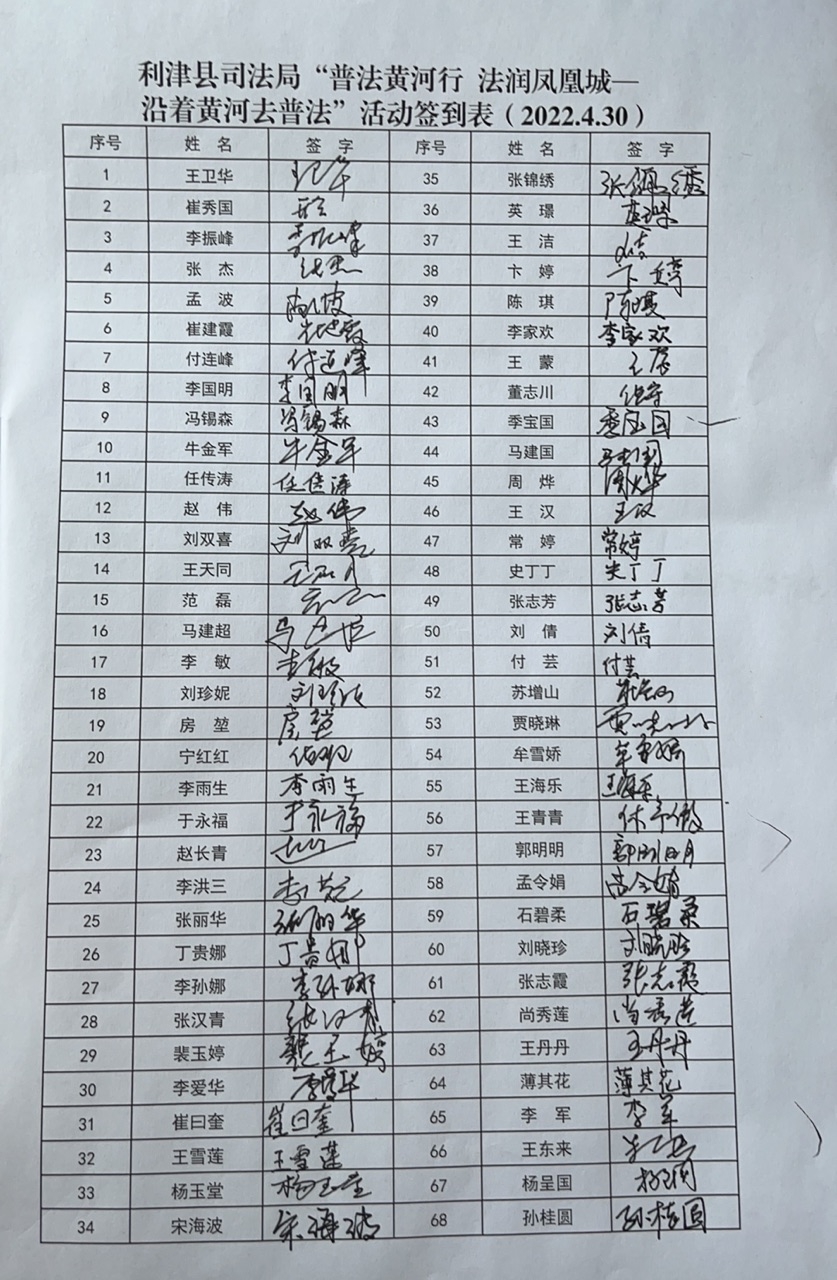 利津县司法局“普法黄河行 法润凤凰城—
沿着黄河去普法”活动签到表（2022.4.30）
序号 姓 名 签 字 序号 姓 名 签 字
1 王卫华 35 张锦绣 张锦绣
2 崔秀国 36 英 璟 英璟
3 李振峰 李振峰 37 王 洁 王洁
4 张 杰 张杰 38 卞 婷 卞婷
5 孟 波 孟波 39 陈 琪 陈琪
6 崔建霞 40 李家欢 李家欢
7 付连峰 付连峰 41 王 蒙 王蒙
8 李国明 李国明 42 董志川
9 冯锡森 冯锡森 43 季宝国 季宝国
10 牛金军 牛金军 44 马建国 马建国
11 任传涛 任传涛 45 周 烨 周烨
12 赵 伟 赵伟 46 王 汉 王汉
13 刘双喜 刘双喜 47 常 婷 常婷
14 王天同 48 史丁丁 史丁丁
15 范 磊 49 张志芳 张志芳
16 马建超 50 刘 倩 刘倩
17 李 敏 李敏 51 付 芸 付芸
18 刘珍妮 52 苏增山
19 房 堃 房堃 53 贾晓琳
20 宁红红 54 牟雪娇
21 李雨生 李雨生 55 王海乐 王海乐
22 于永福 于永福 56 王青青
23 赵长青 57 郭明明 郭明明
24 李洪三 58 孟令娟 孟令娟
25 张丽华 张丽华 59 石碧柔 石碧柔
26 丁贵娜 丁贵娜 60 刘晓珍
27 李孙娜 李孙娜 61 张志霞 张志霞
28 张汉青 张汉青 62 尚秀莲 尚秀莲
29 裴玉婷 63 王丹丹 王丹丹
30 李爱华 李爱华 64 薄其花 薄其花
31 崔曰奎 崔曰奎 65 李 军 李军
32 王雪莲 王雪莲 66 王东来
33 杨玉堂 杨玉堂 67 杨呈国
34 宋海波 宋海波 68 孙桂圆 孙桂圆